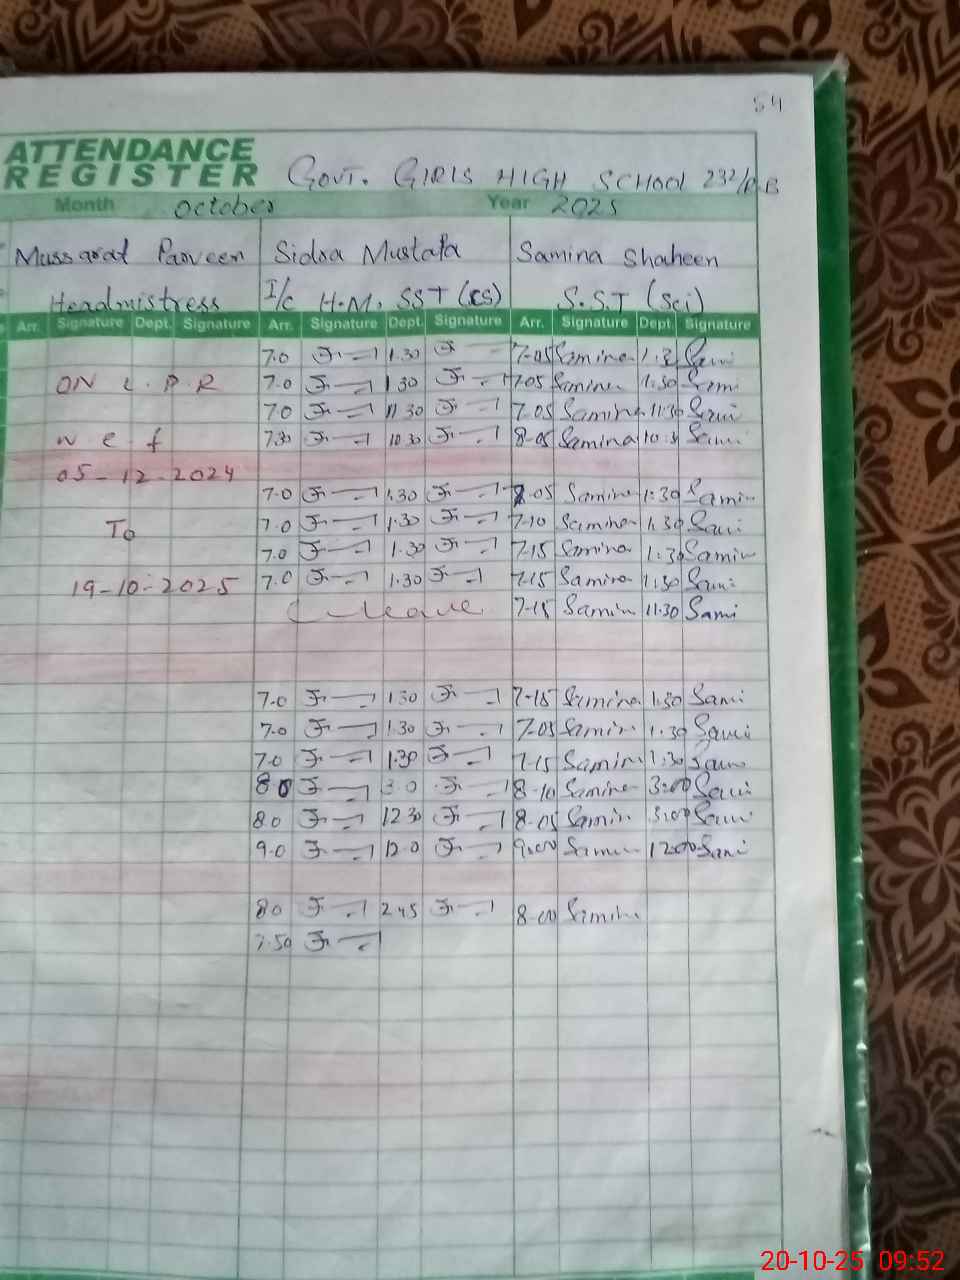 54
ATTENDANCE
REGISTER GOVT. GIRLS HIGH SCHOOL 232/R.B
Month October Year 2025
Mussarat Parveen Sidra Mustafa Samina Shaheen
Headmistress I/C H.M. SST (CS) S.S.T (Sci)
Arr. Signature Dept. Signature Arr. Signature Dept. Signature Arr. Signature Dept. Signature
7.0 1.30 7-05 Samina 1:3
ON L.P.R 7.0 1 30 7.05 Samina 1:30
7.0 11 30 7.05 Samina 11:30
w e f 7.30 10.30 8-05 Samina 10:3
05-12-2024
7.0 1.30 8.05 Samina 1:30 Samin
To 7.0 1.30 7-10 Samina 1:30
7.0 1.30 7-15 Samina 1:30 Samin
19-10-2025 7.0 1.30 7-15 Samina 1:30 Sami
C leave 7-15 Samin 11:30 Sami
7.0 1.30 7-15 Samina 1:30 Sami
7.0 1.30 7-05 Samin 1:30
7.0 1.30 7-15 Samina 1:30 Sam
8 0 3.0 8-10 Samina 3:00
8.0 12 30 8-05 Samin 3:00
9.0 12.0 9:00 Samin 12:00 Sami
8.0 2 45 8-00 Samina
7.50
20-10-25 09:52